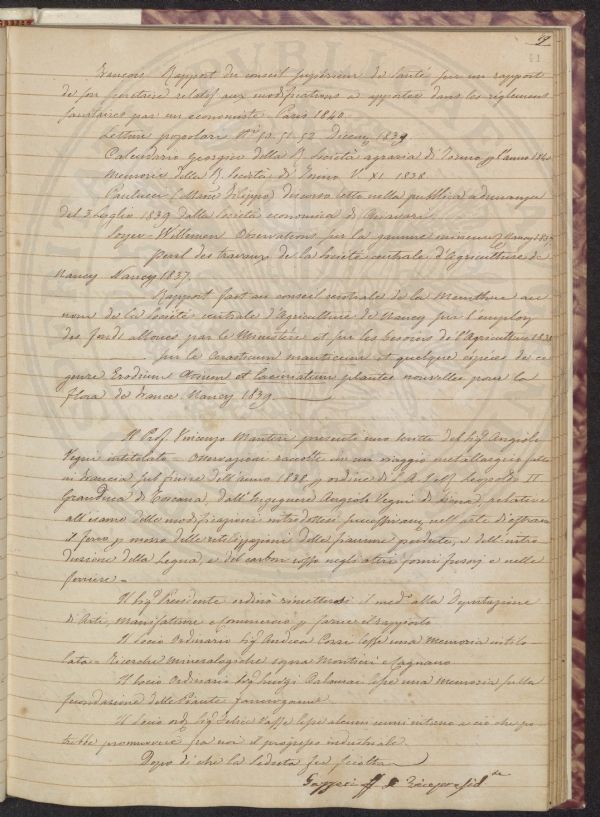 François Rapport du conseil supérieur de Santé sur un rapport
de son secretaire relatif aux modifications a apporter dans les réglemens
sanitaires par un économiste. Paris 1840.
Letture popolari N.i 50. 51. 52 Dicem. 1839
Calendario georgico della R. Società agraria di Torino pl'anno 1840
Memorie della R. Società di Torino V. XI 1838
Paulucci (Filippo) discorso letto nella pubblica adunanza
del 3 Luglio 1839 dalla Società economica di
Soyer-Willemet Observations sur la gomme Nancy
des travaux de la Société centrale d'Agriculture de
Nancy Nancy 1837
Rapport fait au conseil centrale de la Meurthe au
nom de la Société centrale d'Agriculture de Nancy sur l'emploi
des fonds alloués par le Ministére et sur les besoins de l'Agriculture
Sur le et quelque espèces de ce
genre Erodium et laciniatum plantes nouvelles pour la
flora de France. Nancy 1839
Il Prof. Vincenzo Mantini presentò uno scritto del Sig. Angiolo
Vegni intitolato Osservazioni raccolte in un viaggio metallurgico fatto
in Francia sul finire dell'anno 1838 p ordine di S. A. I. e R. Leopoldo I
Granduca di Toscana dall'Ingegnere Angiolo Vegni di Siena, relative
all'esame delle modificazioni introdottesi nell'arte di estrarre
il ferro p mezzo delle fiamme perdute, e dell'intro
duzione della Legna, e del carbon negli altri forni fusorj e nelle
ferriere
Il Sig. Presidente ordinò rimettersi il med. alla Deputazione
di Arti, manifatture e commercio p farne il rapporto
Il Socio Ordinario Sig. Andrea Corsi lesse una Memoria intito
lata Ricerche mineralogiche sopra Montieri e
Il Socio Ordinario Sig. Luigi una memoria sulla
fecondazione delle Piante fanerogame
Il Socio ord. Sig. lesse alcuni cenni intorno a ciò che po
trebbe promuovere fra noi il progresso industriale.
Dopo di che la seduta fu sciolta